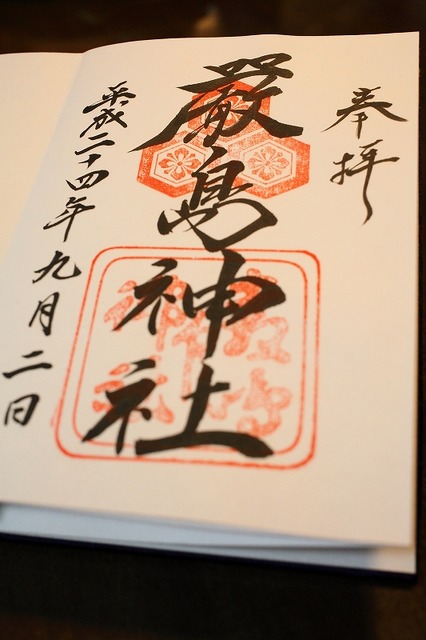 奉拝
厳島神社
平成二十四年九月二日